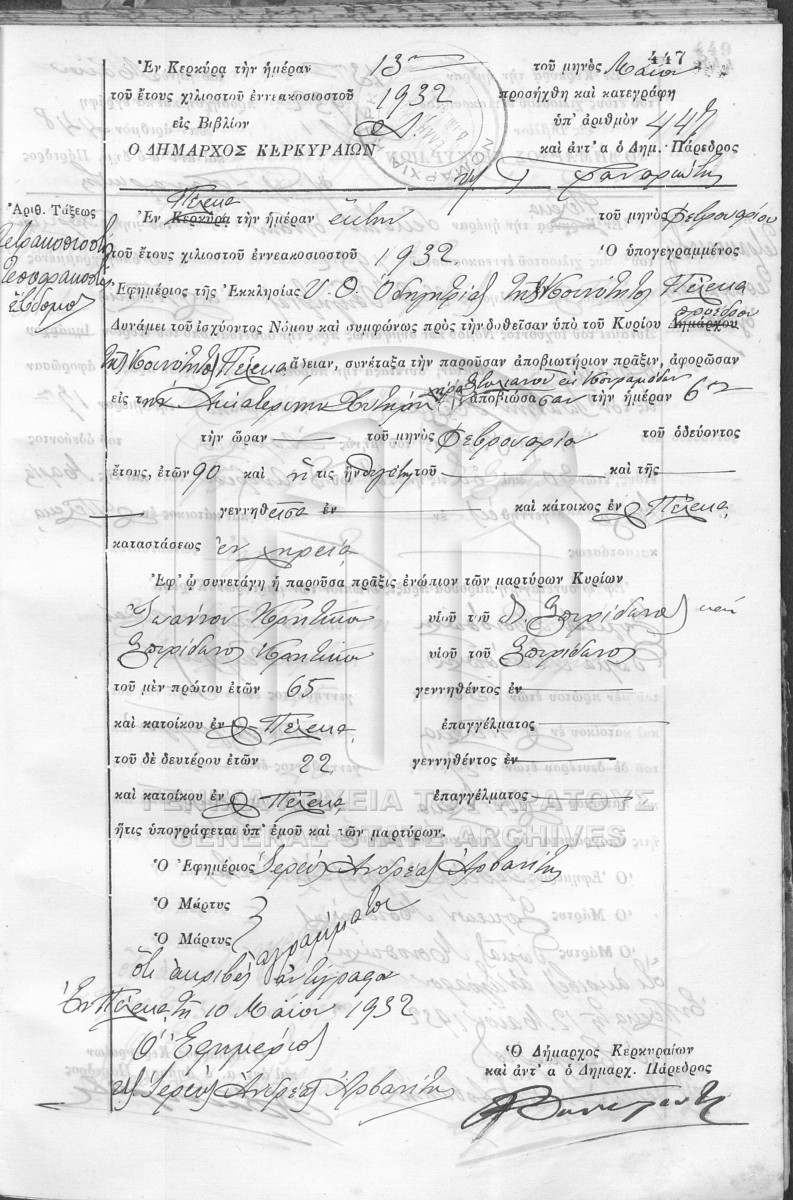 447
Ἐν Κερκύρᾳ τὴν ἡμέραν 13ην τοῦ μηνὸς Μαΐου
τοῦ ἔτους χιλιοστοῦ ἐννεακοσιοστοῦ 1932 προσήχθη καὶ κατεγράφη
εἰς Βιβλίον ὑπ' ἀριθμὸν 447
Ο ΔΗΜΑΡΧΟΣ ΚΕΡΚΥΡΑΙΩΝ καὶ ἀντ' α ὁ Δημ. Πάρεδρος
Ἀριθ. Τάξεως
Τετρακοσιοστὴ
Τεσσαρακοστὴ
ἑβδόμη
Πέλεκα
Ἐν Κερκύρᾳ τὴν ἡμέραν ἕκτην τοῦ μηνὸς Φεβρουαρίου
τοῦ ἔτους χιλιοστοῦ ἐννεακοσιοστοῦ 1932. Ὁ ὑπογεγραμμένος
Ἐφημέριος τῆς Ἐκκλησίας Υ. Θ. Ὁδηγητρίας τῆς Κοινότητος Πέλεκα
Δυνάμει τοῦ ἰσχύοντος Νόμου καὶ συμφώνως πρὸς τὴν δοθεῖσαν ὑπὸ τοῦ Κυρίου Δημάρχου προέδρου
τῆς Κοινότητος Πέλεκα ἄδειαν, συνέταξα τὴν παροῦσαν ἀποβιωτήριον πρᾶξιν, ἀφορῶσαν
εἰς τὴν Αἰκατερίνην χήρα Στυλιανοῦ ἀποβιώσασαν τὴν ἡμέραν 6ην
τὴν ὥραν — τοῦ μηνὸς Φεβρουαρίου τοῦ ὁδεύοντος
ἔτους, ἐτῶν 90 καὶ ἥτις ἦν θυγάτηρ τοῦ — καὶ τῆς —
— γεννηθεῖσα ἐν — καὶ κάτοικος ἐν Πέλεκα
καταστάσεως ἐν χηρείᾳ
Ἐφ' ᾧ συνετάγη ἡ παροῦσα πρᾶξις ἐνώπιον τῶν μαρτύρων Κυρίων
Ἰωάννου Κρητικοῦ υἱοῦ τοῦ Σπυρίδωνος καὶ
Σπυρίδωνος Κρητικοῦ υἱοῦ τοῦ Σπυρίδωνος
τοῦ μὲν πρώτου ἐτῶν 65 γεννηθέντος ἐν —
καὶ κατοίκου ἐν Πέλεκα ἐπαγγέλματος —
τοῦ δὲ δευτέρου ἐτῶν 22 γεννηθέντος ἐν —
καὶ κατοίκου ἐν Πέλεκα ἐπαγγέλματος —
ΓΕΝΙΚΑ ΑΡΧΕΙΑ ΤΟΥ ΚΡΑΤΟΥΣ
ἥτις ὑπογράφεται ὑπ' ἐμοῦ καὶ τῶν μαρτύρων.
GENERAL STATE ARCHIVES
Ὁ Ἐφημέριος Ἱερεὺς Ἀνδρέας Ἀρβανίτης
Ὁ Μάρτυς
Ὁ Μάρτυς ἀγράμματοι
ὅτι ἀκριβὲς ἀντίγραφον
Ἐν Πέλεκα τῇ 10 Μαΐου 1932
Ὁ Ἐφημέριος
Ἱερεὺς Ἀνδρέας Ἀρβανίτης
Ὁ Δήμαρχος Κερκυραίων
καὶ ἀντ' α ὁ Δημαρχ. Πάρεδρος